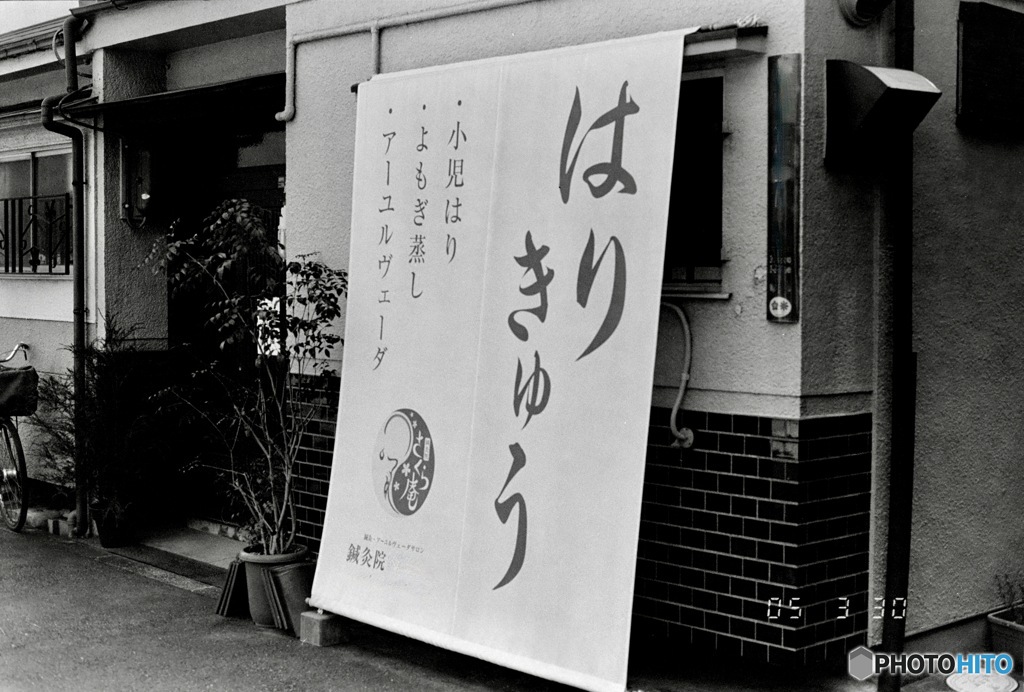 はり
きゅう
・小児はり
・よもぎ蒸し
・アーユルヴェーダ
さくら庵
鍼灸・アーユルヴェーダサロン
鍼灸院
05 3 30
PHOTOHITO